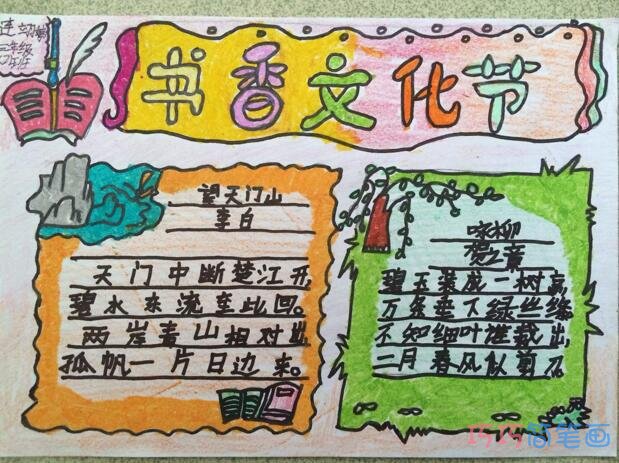 三年级
书香文化节
望天门山
李白
天门中断楚江开
碧水东流至此回。
两岸青山相对出
孤帆一片日边来。
咏柳
贺之章
碧玉装成一树高
万条垂下绿丝绦
不知细叶谁裁出
二月春风似剪刀
巧巧简笔画